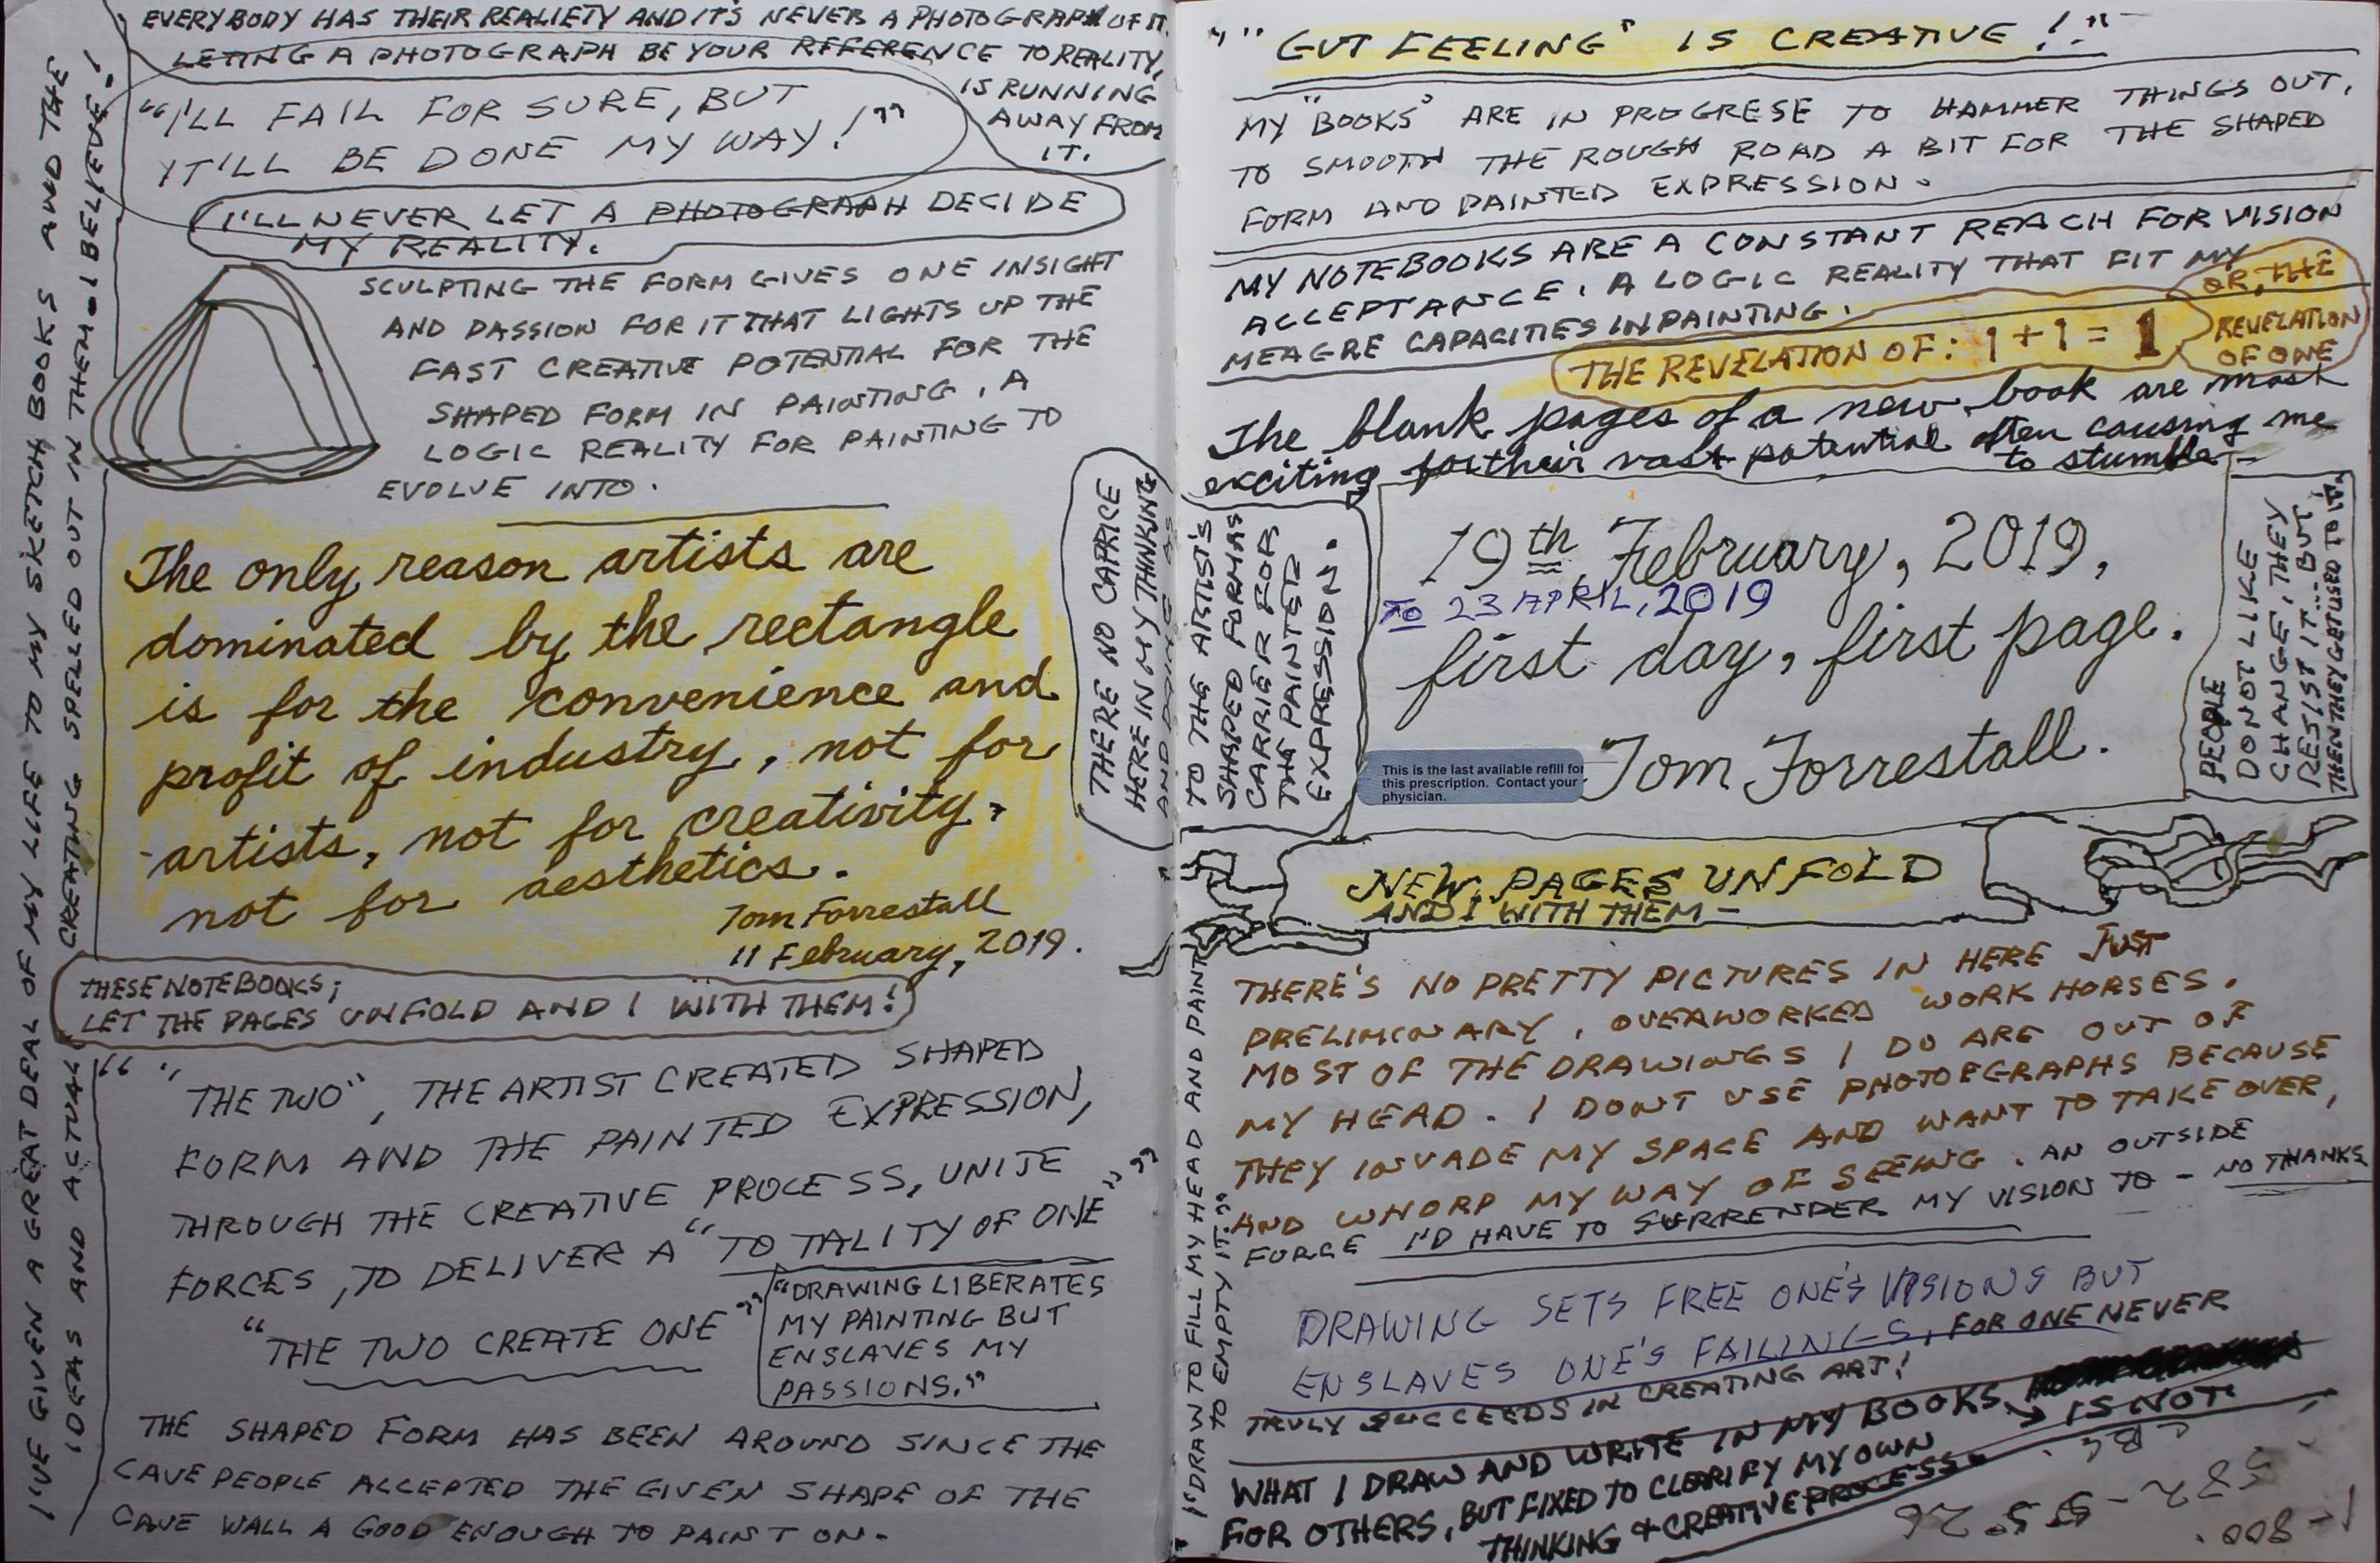 EVERYBODY HAS THEIR REALIETY AND IT'S NEVER A PHOTOGRAPH OF IT.
LETING A PHOTOGRAPH BE YOUR REFERENCE TO REALITY,
IS RUNNING
AWAY FROM
IT.
"I'LL FAIL FOR SURE, BUT
IT'LL BE DONE MY WAY!"
I'LL NEVER LET A PHOTOGRAPH DECIDE
MY REALITY.
SCULPTING THE FORM GIVES ONE INSIGHT
AND PASSION FOR IT THAT LIGHTS UP THE
FAST CREATIVE POTENTIAL FOR THE
SHAPED FORM IN PAINTING, A
LOGIC REALITY FOR PAINTING TO
EVOLVE INTO.
The only reason artists are
dominated by the rectangle
is for the convenience and
profit of industry, not for
artists, not for creativity,
not for aesthetics.
Tom Forrestall
11 February, 2019.
THESE NOTEBOOKS;
LET THE PAGES UNFOLD AND I WITH THEM!
" "THE TWO", THE ARTIST CREATED SHAPED
FORM AND THE PAINTED EXPRESSION,
THROUGH THE CREATIVE PROCESS, UNITE
FORCES, TO DELIVER A "TOTALITY OF ONE" "
"THE TWO CREATE ONE"
"DRAWING LIBERATES
MY PAINTING BUT
ENSLAVES MY
PASSIONS."
THE SHAPED FORM HAS BEEN AROUND SINCE THE
CAVE PEOPLE ACCEPTED THE GIVEN SHAPE OF THE
CAVE WALL A GOOD ENOUGH TO PAINT ON.
I'VE GIVEN A GREAT DEAL OF MY LIFE TO MY SKETCH BOOKS AND THE
IDEAS AND ACTUAL CREATING SPELLED OUT IN THEM. I BELIEVE!
THERE NO CAPRICE
HERE IN MY THINKING
AND DOING AS
TO THE ARTIST'S
SHAPED FORM AS
CARRIER FOR
THE PAINTED
EXPRESSION.
""GUT FEELING" IS CREATIVE!"
MY "BOOKS" ARE IN PROGRESE TO HAMMER THINGS OUT,
TO SMOOTH THE ROUGH ROAD A BIT FOR THE SHAPED
FORM AND PAINTED EXPRESSION.
MY NOTEBOOKS ARE A CONSTANT REACH FOR VISION
ACCEPTANCE. A LOGIC REALITY THAT FIT MY
MEAGRE CAPACITIES IN PAINTING.
THE REVELATION OF: 1+1=1
OR, THE
REVELATION
OF ONE
The blank pages of a new book are most
exciting for their vast potential often causing me
to stumble -
19th February, 2019,
TO 23 APRIL, 2019
first day, first page.
Tom Forrestall.
This is the last available refill for
this prescription. Contact your
physician.
PEOPLE
DO NOT LIKE
CHANGE, THEY
RESIST IT... BUT
THEN THEY GET USED TO IT.
NEW PAGES UNFOLD
AND I WITH THEM -
THERE'S NO PRETTY PICTURES IN HERE JUST
PRELIMINARY, OVERWORKED WORK HORSES.
MOST OF THE DRAWINGS I DO ARE OUT OF
MY HEAD. I DON'T USE PHOTOEGRAPHS BECAUSE
THEY INVADE MY SPACE AND WANT TO TAKE OVER,
AND WHORP MY WAY OF SEEING. AN OUTSIDE
FORCE I'D HAVE TO SURRENDER MY VISION TO - NO THANKS
DRAWING SETS FREE ONE'S VISIONS BUT
ENSLAVES ONE'S FAILINGS, FOR ONE NEVER
TRULY SUCCEEDS IN CREATING ART!
WHAT I DRAW AND WRITE IN MY BOOKS IS NOT
FOR OTHERS, BUT FIXED TO CLEARIFY MY OWN
THINKING & CREATIVE PROCESS.
"I DRAW TO FILL MY HEAD AND PAINT
TO EMPTY IT."
CBC.
1-800.
532-